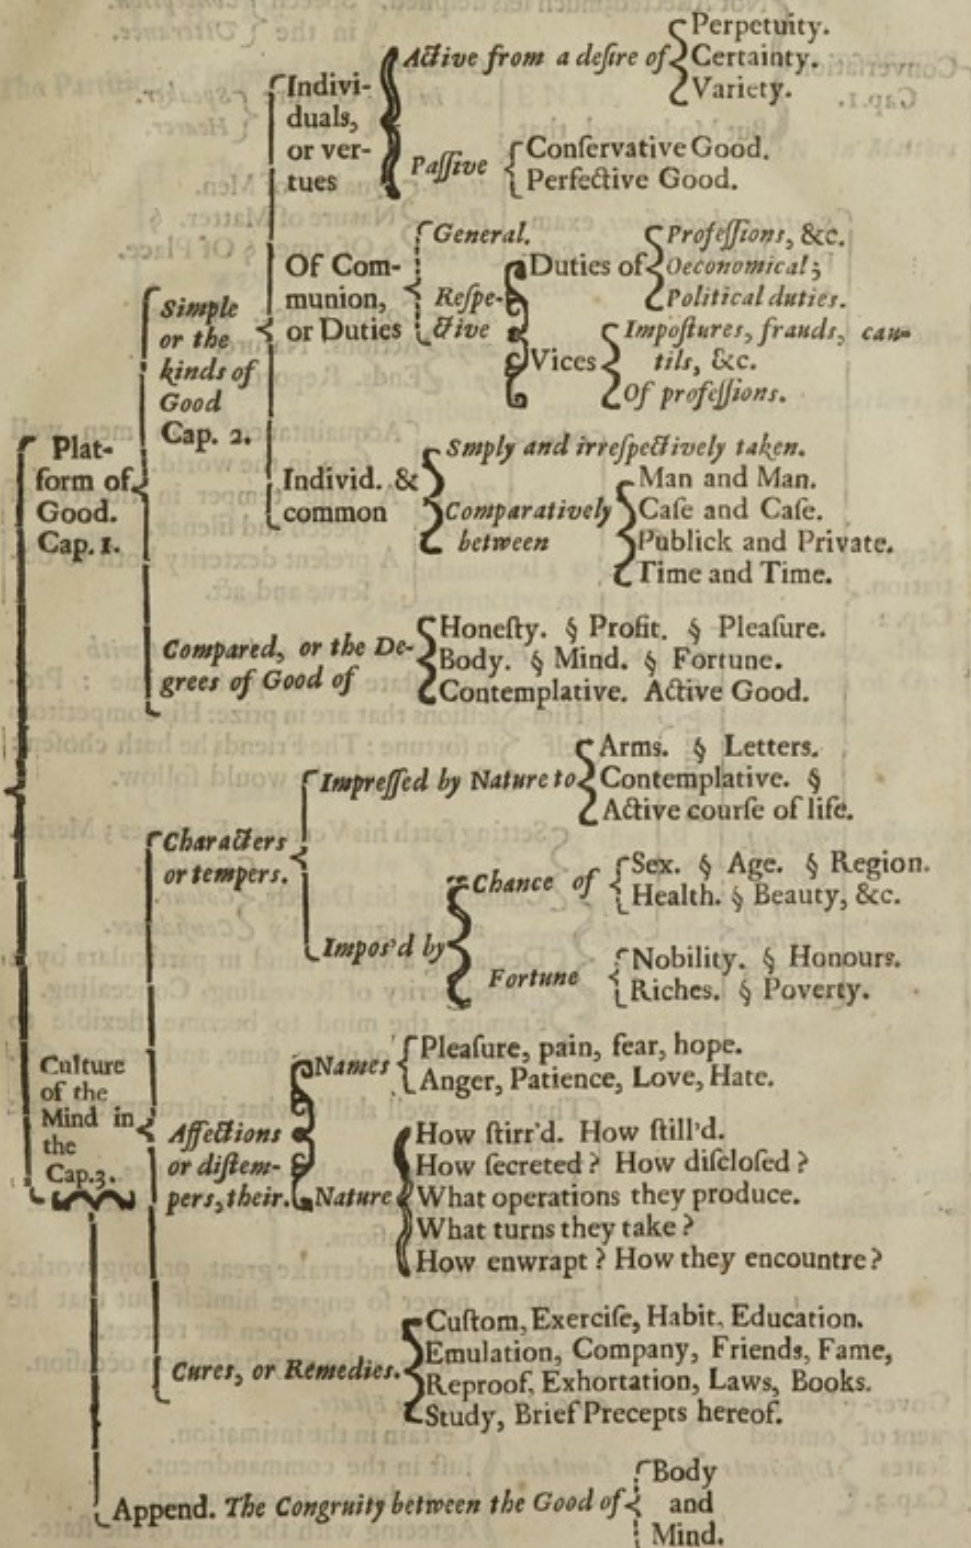 Active from a deſire of
Perpetuity.
Certainty.
Variety.
Indivi-
duals,
or ver-
tues
Paſſive
Conſervative Good.
Perfective Good.
General.
Of Com-
munion,
or Duties
Reſpe-
ctive
Duties of
Profeſſions, &c.
Oeconomical;
Political duties.
Vices
Impoſtures, frauds, cau-
tils, &c.
Of profeſſions.
Simple
or the
kinds of
Good
Cap. 2.
Individ. &
common
Smply and irreſpectively taken.
Comparatively
between
Man and Man.
Caſe and Caſe.
Publick and Private.
Time and Time.
Plat-
form of
Good.
Cap. 1.
Compared, or the De-
grees of Good of
Honeſty. § Profit. § Pleaſure.
Body. § Mind. § Fortune.
Contemplative. Active Good.
Characters
or tempers.
Impreſſed by Nature to
Arms. § Letters.
Contemplative. §
Active courſe of life.
Impos'd by
Chance of
Sex. § Age. § Region.
Health. § Beauty, &c.
Fortune
Nobility. § Honours.
Riches. § Poverty.
Culture
of the
Mind in
the
Cap.3.
Affections
or diſtem-
pers, their.
Names
Pleaſure, pain, fear, hope.
Anger, Patience, Love, Hate.
Nature
How ſtirr'd. How ſtill'd.
How ſecreted? How diſcloſed?
What operations they produce.
What turns they take?
How enwrapt? How they encountre?
Cures, or Remedies.
Cuſtom, Exerciſe, Habit, Education.
Emulation, Company, Friends, Fame,
Reproof, Exhortation, Laws, Books.
Study, Brief Precepts hereof.
Append. The Congruity between the Good of
Body
and
Mind.